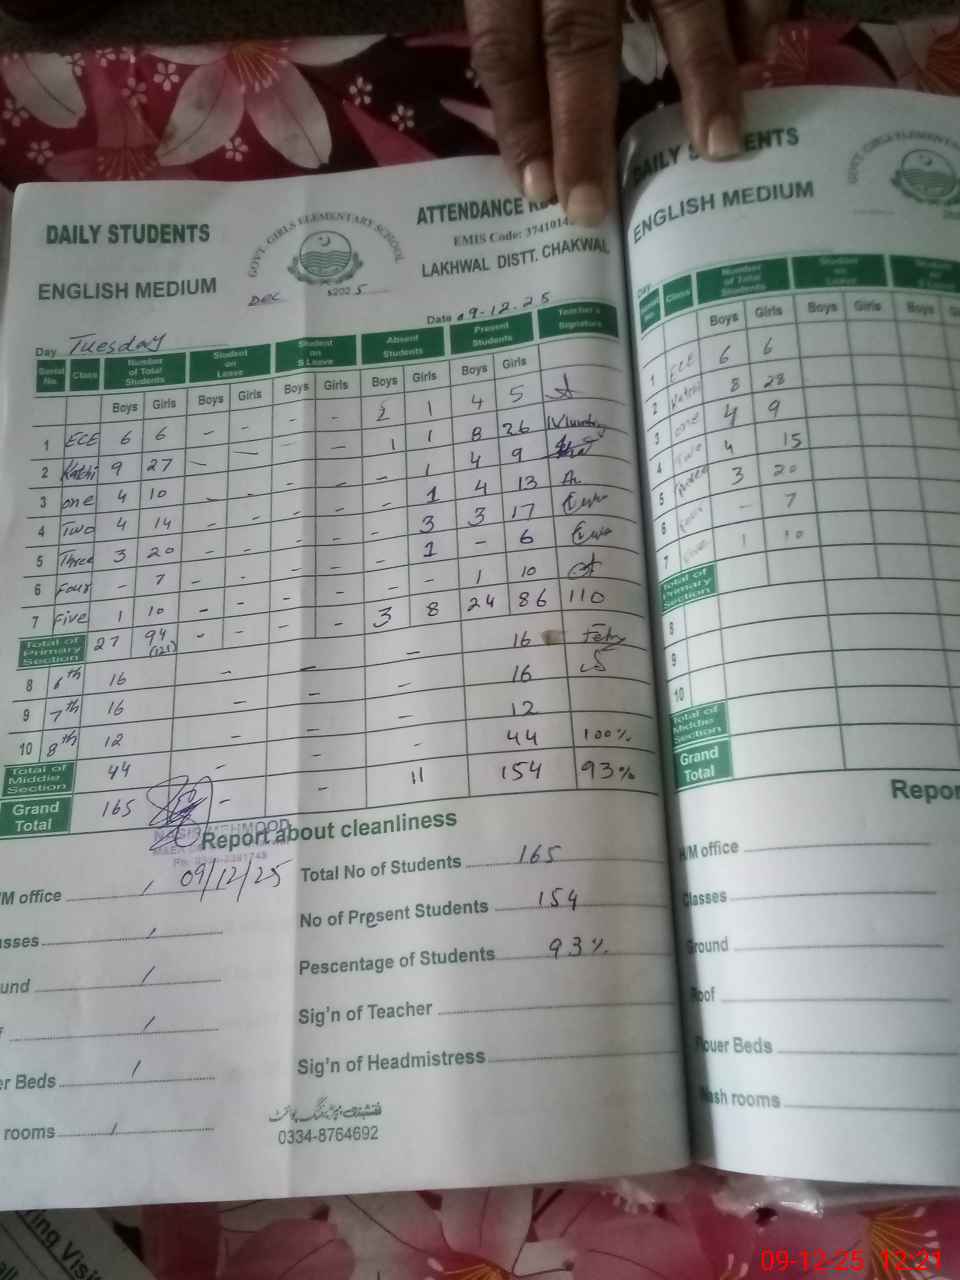 DAILY STUDENTS
ENGLISH MEDIUM
GOVT. GIRLS ELEMENTARY SCHOOL
ATTENDANCE
EMIS Code: 3741014
LAKHWAL DISTT. CHAKWAL
Dec 2025
Date 09-12-25
Day Tuesday
Serial No. Class Number of Total Students Student on Leave Student on S Leave Absent Students Present Students Teacher's Signature
Boys Girls Boys Girls Boys Girls Boys Girls Boys Girls
1 ECE 6 6 - - - - 2 1 4 5
2 Katchi 9 27 - - - - 1 1 8 26
3 one 4 10 - - - - - 1 4 9
4 Two 4 14 - - - - - 1 4 13
5 Three 3 20 - - - - - 3 3 17
6 Four - 7 - - - - - 1 - 6
7 Five 1 10 - - - - - - 1 10
Total of Primary Section 27 94 (121) - - - - 3 8 24 86 110
8 6th 16 - - - 16
9 7th 16 - - - 16
10 8th 12 - - - 12
Total of Middle Section 44 - - - 44 100%
Grand Total 165 - - 11 154 93%
NASIR MEHMOOD
09/12/25
Report about cleanliness
/M office /
asses /
und /
f /
er Beds /
rooms /
Total No of Students 165
No of Present Students 154
Pescentage of Students 93%
Sig'n of Teacher
Sig'n of Headmistress
0334-8764692
DAILY STUDENTS
ENGLISH MEDIUM
Day
Class Number of Total Students Student on Leave Student
Boys Girls Boys Girls Boys
1 ECE 6 6
2 Katchi 8 28
3 one 4 9
4 Two 4 15
5 Three 3 20
6 Four - 7
7 Five 1 10
Total of Primary Section
8
9
10
Total of Middle Section
Grand Total
Repor
H/M office
Classes
Ground
Roof
Flouer Beds
Wash rooms
09-12-25 12:21